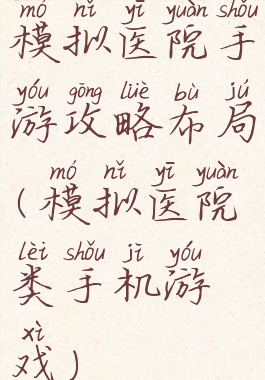 mó nǐ yī yuàn shǒu
模拟医院手
yóu gōng lüè bù jú
游攻略布局
mó nǐ yī yuàn
(模拟医院
lèi shǒu jī yóu
类手机游
xì
戏)